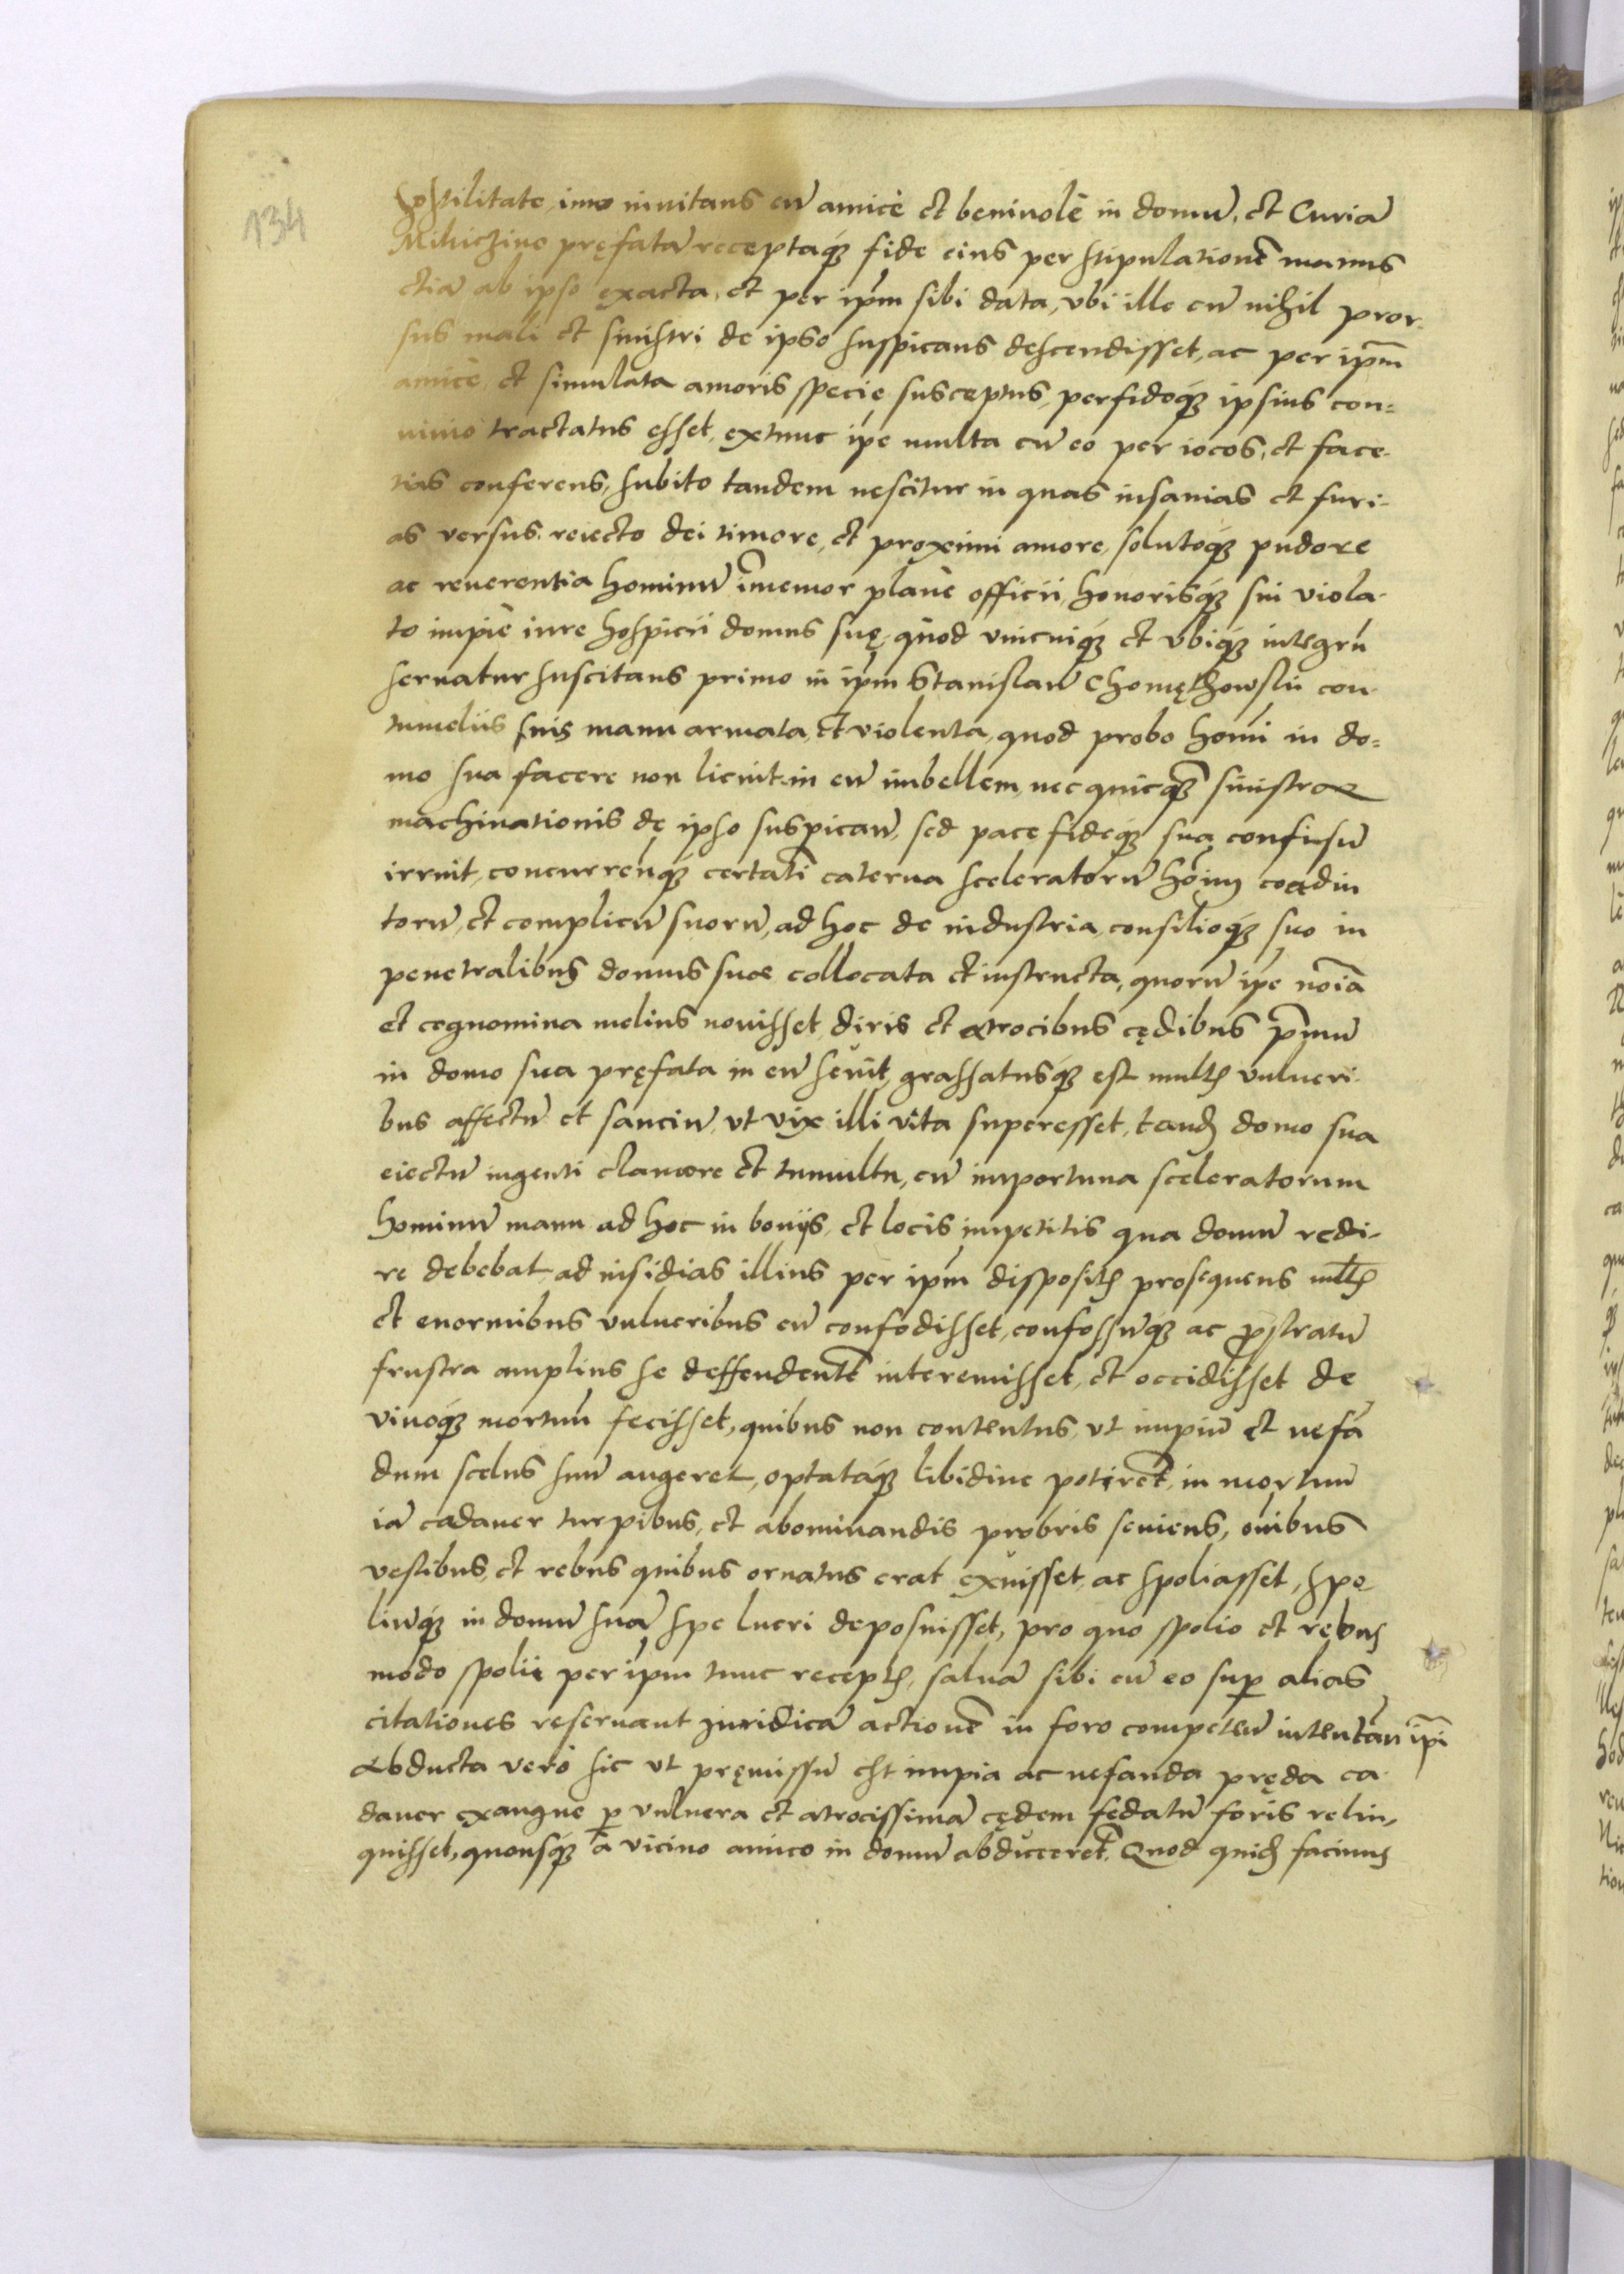 134
hostilitate, imo inuitans eū amicè et beniuolè in domū, et Curiā
Mihiczino pręfatā receptaq́ fide eius per stipulationē manus
etiā ab ipso exacta, et per ip̄m sibi data, vbi ille cū nihil pror-
sus mali et sinistri de ipso suspicans descendisset, ac per ip̄m
amicè et simulata amoris specie susceptus, perfidoq́ ipsius con=
uiuio tractatus esset, extunc ip̄e multa cū eo per iocos, et face-
tias conferens, subito tandem nescitur in quas insanias et furi-
as versus reiecto dei timore, et proximi amore, solutoq́ pudore
ac reuerentia hominū im̄emor planè officii, honorisq́ sui viola-
to impiè iure hospicii domus suę, quod vnicuiq́ et vbiq́ integrū
seruatur suscitans primo in ip̄m Stanislaū Chomęthowskii con-
tumeliis suis manu armata, et violenta, quod probo hom̄i in do=
mo sua facere non licuit, in eū imbellem, nec quicq̄ sinistrae
machinationis de ipso suspicatū, sed pace fideq́ sua confisū
irruit, concurrenq́ certatī caterua sceleratorū hoīm coadiu
torū, et complicū suorū, ad hoc de industria, consilioq́ suo in
penetralibus domus suae collocata et instructa, quorū ip̄e noīa
et cognomina melius nouisset, diris et atrocibus cędibus p̄mū
in domo sua pręfata in eū seuit, grassatusq́ est mult͛ vulneri-
bus affectū et sauciū, vt vix illi vita superesset, tand͛ domo sua
eiectū ingenti clamore et tumultu, cū importuna sceleratorum
hominū manu ad hoc in boniis, et locis impetitis qua domū redi-
re debebat, ad insidias illius per ip̄m disposit͛ prosequens mlt͛
et enormibus vulneribus eū confodisset, confossūq́ ac prostratū
frustra amplius se deffendentē interemisset, et occidisset de
viuoq́ mortuū fecisset, quibus non contentus, vt impiū et nefā
dum scelus suū augeret, optatáq́ libidine potiret̄, in mortuū
iā cadauer turpibus, et abominandis probris seuiens, oībus
vestibus, et rebus quibus ornatus erat exuisset, ac spoliasset, spo
liūq́ in domū suā spe lucri deposuisset, pro quo spolio et rebus
modo spolii per ip̄m tunc recept͛, saluā sibi cū eo sup̱ alias
citationes reseruant iuridicā actionē in foro competeū intentan ip̄i
Abducta verò sic vt pręmissū est impia ac nefanda pręda ca-
dauer exangue p̱ vulnera et atrocissimā cędem fędatū foris relin-
quisset, quousq́ a vicino amico in domū abduceret̄. Quod quid͛ facinus